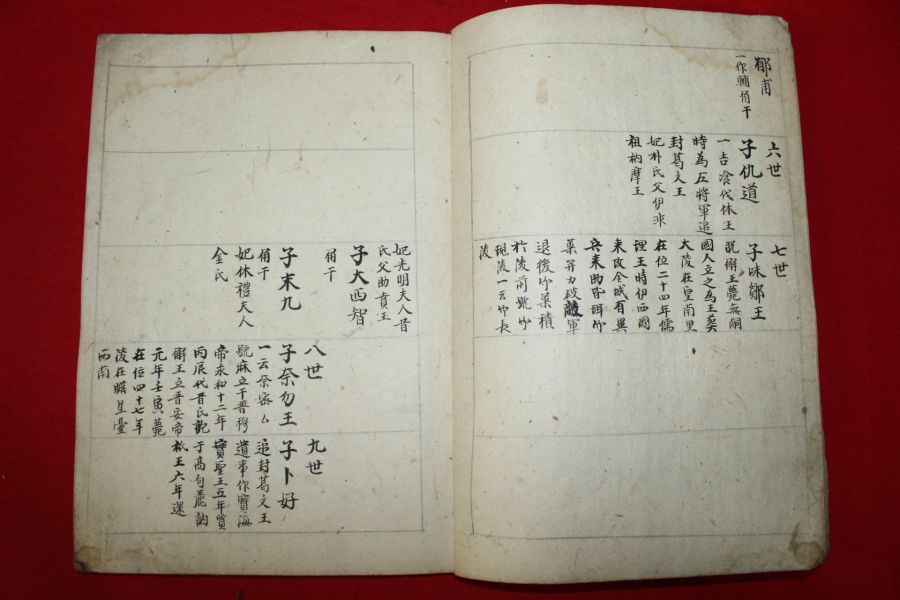 郁甫
一作輔角干
六世
子仇道
一吉飡伐休王
時為左將軍追
封葛文王
妃朴氏父伊柒
祖枘摩王
七世
子味鄒王
脫解王薨無嗣
國人立之為王葬
大陵在皇南里
在位二十四年儒
理王時伊西國
来攻金城有異
兵来助皆珥竹
葉并力破敵軍
退後竹葉積
於陵前號竹
現陵一云竹長
陵
妃光明夫人昔
氏父助賁王
子大西智
角干
子末九
角干
妃休禮夫人
金氏
八世
子奈勿王
一云奈密
號麻立干晋穆
帝永和十二年
丙辰代昔氏訖
解王立晋安帝
元年壬寅薨
在位四十七年
陵在瞻星臺
西南
九世
子卜好
追封葛文王
遺事作寶海
實聖王五年質
于高句麗訥
祇王六年還